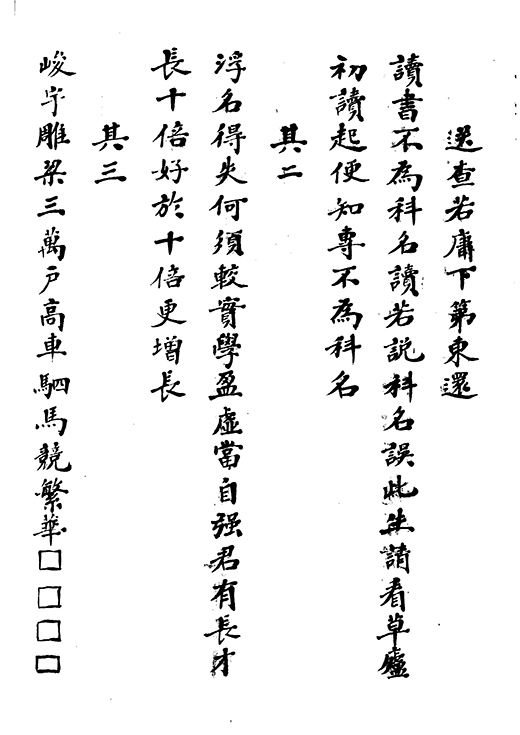 送查若庸下第東還
讀書不為科名讀若説科名誤此生請看草廬
初讀起便知專不為科名
其二
浮名得失何須較實學盈虛當自强君有長才
長十倍好於十倍更增長
其三
峻宇雕梁三萬户高車駟馬競繁華□□□□